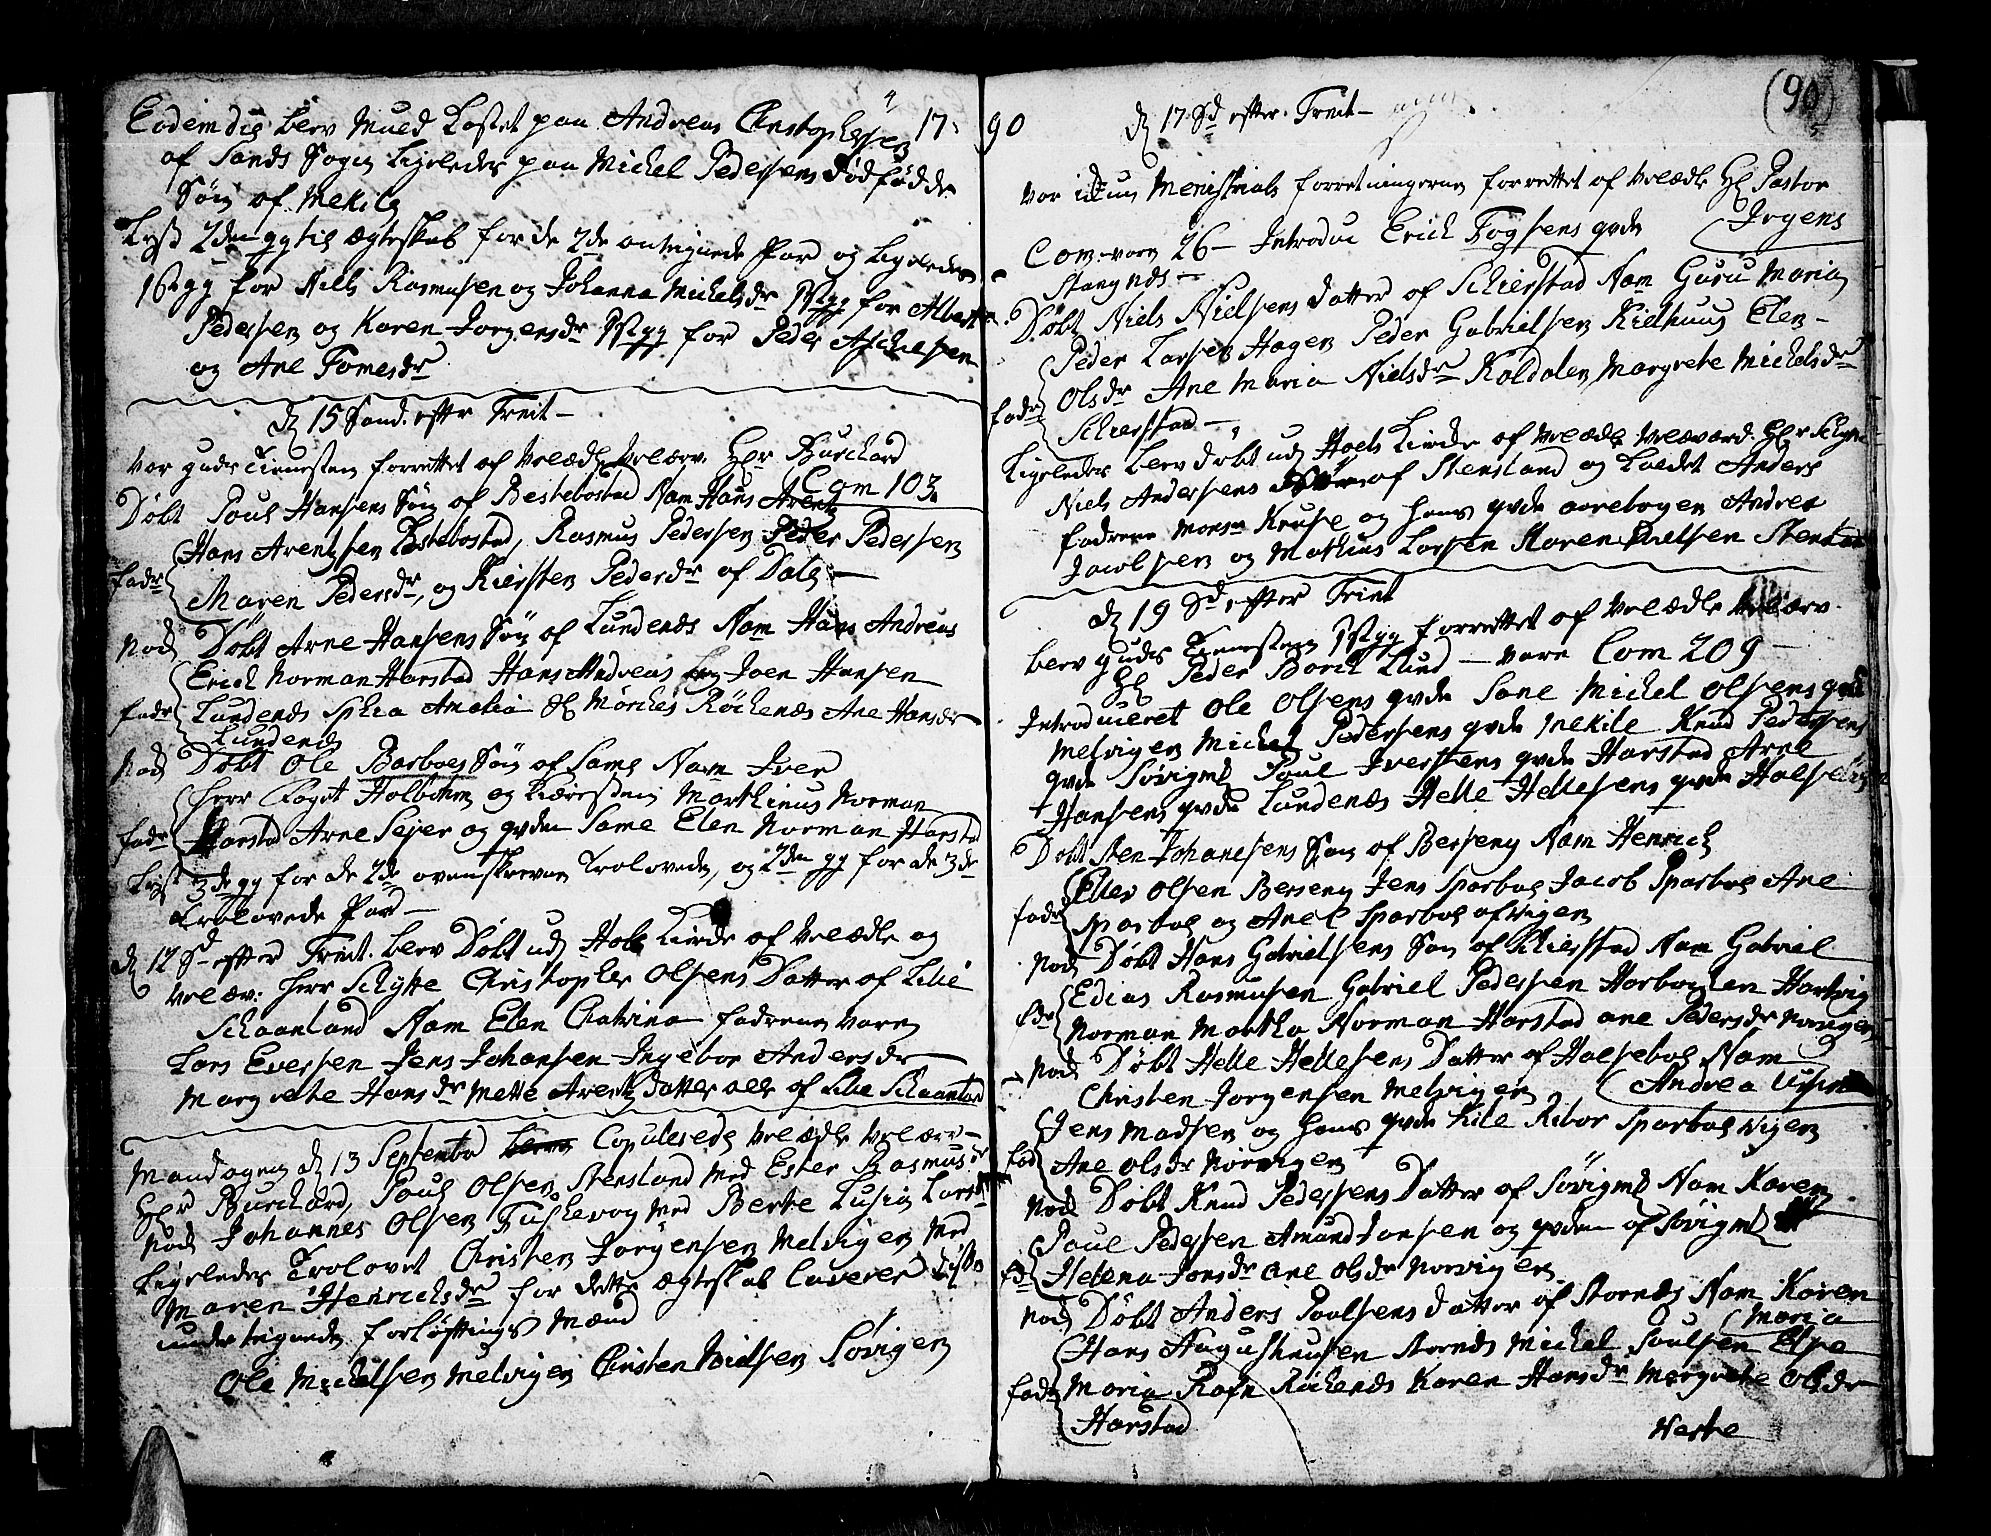 Eodem die blev Muld Kastet paa Andreas Christophersen 17
af Sands Sogn ligeledes paa Michel Pedersens dødfødde
Søn af Mekile
Lyst 2den gg til ægteskab for de 2de antegnede Par og ligeledes
1ste gg for Niels Rasmusen og Johanna Michelsdr 1ste gg for Albert
Pedersen og Karen Jorgensdr 1ste gg for Peder
og Ane Tomesdr
d 15 Sond. efter Trenit
Var guds Tienesten forrettet af Velædle Velærv. Hr Burchard
Com 103
Døbt Poul Hansens Søn af Bestebostad Nam Hans Arent
Hans Arentsen Bestebostad, Rasmus Pedersen Peder Pedersen
fadr
Maren Pedersdr, og Kiersten Pedersdr af Dale
Nok Døbt Arne Hansens Søn af Lundenes Nam Hans Andreas
Erich Norman Harstad Hans Andreas Joen Hansen
fadr Lundenes Sphia Amalia Mørches Røkenæs Ane Hansdr
Lundenes
Nok Døbt Ole Barboes Søn af Same Nam Iver
Herr Foget Holbohm og Kieresten Marthinus Norman
fadr Harstad Arne Sejer og qvden Same Elen Norman Harstad
Lyst 3de gg for de 2de ovenskrevne Trolovede, og 2den gg for de 3de
Trolovede Par
d 12 Sd efter Trenit. blev Døbt udj Hols Kirke af Velædle og
Velærv: Herr Schytte Christopher Olsens Datter af Lille
Schaanland Nam Elen Chatrina fadrene varen
Lars Eversen Jens Johansen Ingebor Andersdr
Margrete Hansdr Mette Arentz datter alle af Lille Schaanland
Mandagen d 13 Septembr Copulerede Velædle Velærv
Hr Burchard, Poul Olsen Stensland med Ester Rasmusdr
Nok Johannes Olsen Fuskevog med Berte Lusia Larsdr
Ligeledes Trolovet Christen Jorgensen Melvigen med
Maren Henrichsdr for dette ægteskab Caverer disse
undertegnede forløftings Mænd
Ole Michelsen Melvigen Christen Nielsen Søvigen
90
(90)
d 17 Sd efter Trenit
var forretningerne forrettet af Velædle Hr Pastor
Jrgens
Com. vare 26 Introduc Erich Togsens qvde
Stangnes
Døbt Niels Nielsens datter af Schierstad Nam Guru Maria
Peder Larsen Hagen Peder Gabrielsen Kielhuus Elen
fadr Olsdr Ane Maria Nielsdr Koldalen Margrete Michelsdr
Schierstad
Ligeledes blev døbt udj Hoels Kirke af Velædle Velærværd. Hr Schytte
Niels Andersens Søn af Stensland og kaldet Anders
fadrene Monsr Kruse og hans qvde aarebogen Andrea
Jacobsen og Mathias Larsen Karen Stensland
d 19 Sd. efter Trinit
blev guds Tienesten 1ste gg forrettet af Velædle Velærv.
Hr Peder Borch Lund vare Com 209
Introduceret Ole Olsens qvde Sane Michel Olsens qvde
Melvigen Michel Pedersens qvde Mekile Knud Pedersens
qvde Søvigen Poul Iversens qvde Harstad Arne
Hansens qvde Lundenæs Helle Hellesens qvde Halsebøe
Døbt Sten Johanesens Søn af Berseny Nam Henrich
Eller Olsen Berseny Jens Sparboe Jacob Sparboe Ane
fadr Sparboe og Anel Sparboe af Vigen
Nok Døbt Hans Gabrielsens Søn af Schierstad Nam Gabriel
Edias Rasmusen Gabriel Pedersen Harboemlen Hartvig
fdr Norman Martha Norman Harstad ane Pedersdr
Nok Døbt Helle Hellesens Datter af Halseboe Nam
Christen Jorgensen Melvigen Andrea
Jens Madsen og hans qvde Kile Ribor Sparboe Vigen
fad Ane Olsdr Norvigen
Nok Døbt Knud Pedersens Datter af Søvigen Nam Karen
Poul Pedersen Amund Jonsen og qvden af Søvigen
fdr Helena Jonsdr ane Olsdr Norvigen
Nok Døbt Anders Poulsens datter af Stornes Nam Karen
Maria
Hans Augustinusen Stornes Michel Poulsen Else
fadr Maria Rafn Røkenes Karen Hansdr Margrete Olsdr
Harstad
Neste